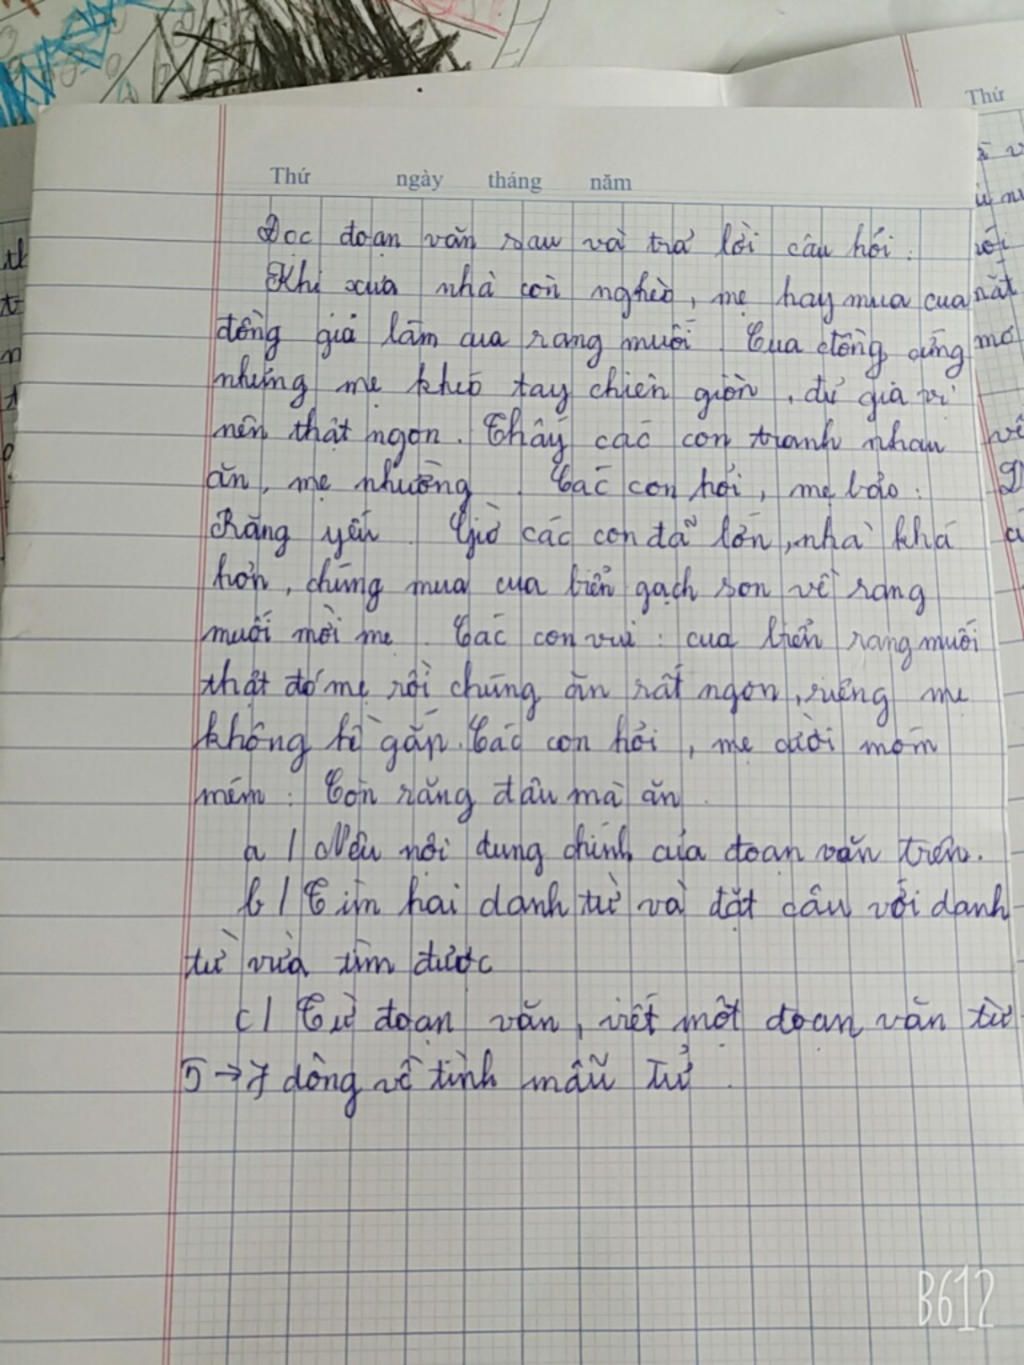 Thứ
Thứ ngày tháng năm
Đọc đoạn văn sau và trả lời câu hỏi :
Khi xưa nhà còn nghèo, mẹ hay mua cua
đồng giả làm cua rang muối . Cua đồng cứng
nhưng mẹ khéo tay chiên giòn, đủ gia vị
nên thật ngon. Thấy các con tranh nhau
ăn, mẹ nhường . Các con hỏi, mẹ bảo :
Răng yếu . Giờ các con đã lớn, nhà khá
hơn, chúng mua cua biển gạch son về rang
muối mời mẹ . Các con vui : cua biển rang muối
thật đó mẹ rồi chúng ăn rất ngon, riêng mẹ
không hề gắp. Các con hỏi, mẹ cười móm
mém : Còn răng đâu mà ăn .
a / Nêu nội dung chính của đoạn văn trên.
b / Tìm hai danh từ và đặt câu với danh
từ vừa tìm được
c / Từ đoạn văn, viết một đoạn văn từ
5 → 7 dòng về tình mẫu tử .
B612